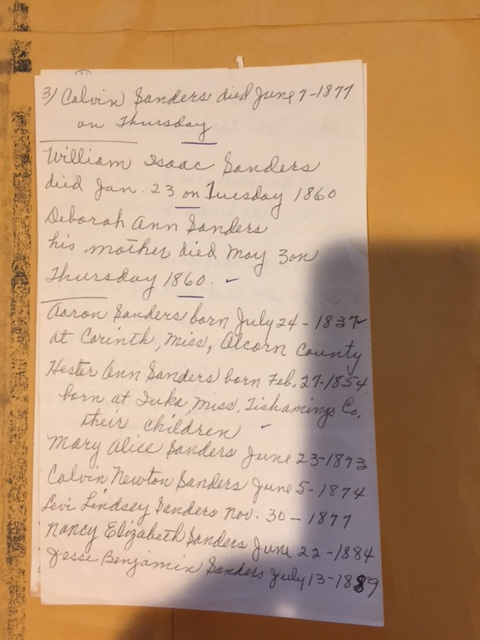 3) Calvin Sanders died June 7-1877
on Thursday
William Isaac Sanders
died Jan. 23 on Tuesday 1860
Deborah Ann Sanders
his mother died May 3 on
Thursday 1860.
Aaron Sanders born July 24-1837
at Corinth, Miss, Alcorn County
Hester Ann Sanders born Feb, 27-1854
born at Iuka, Miss, Tishamingo Co,
their children
Mary Alice Sanders June 23-1873
Calvin Newton Sanders June 5-1874
Levi Lindsey Sanders Nov. 30-1877
Nancy Elizabeth Sanders June 22-1884
Jesse Benjamin Sanders July 13-1889